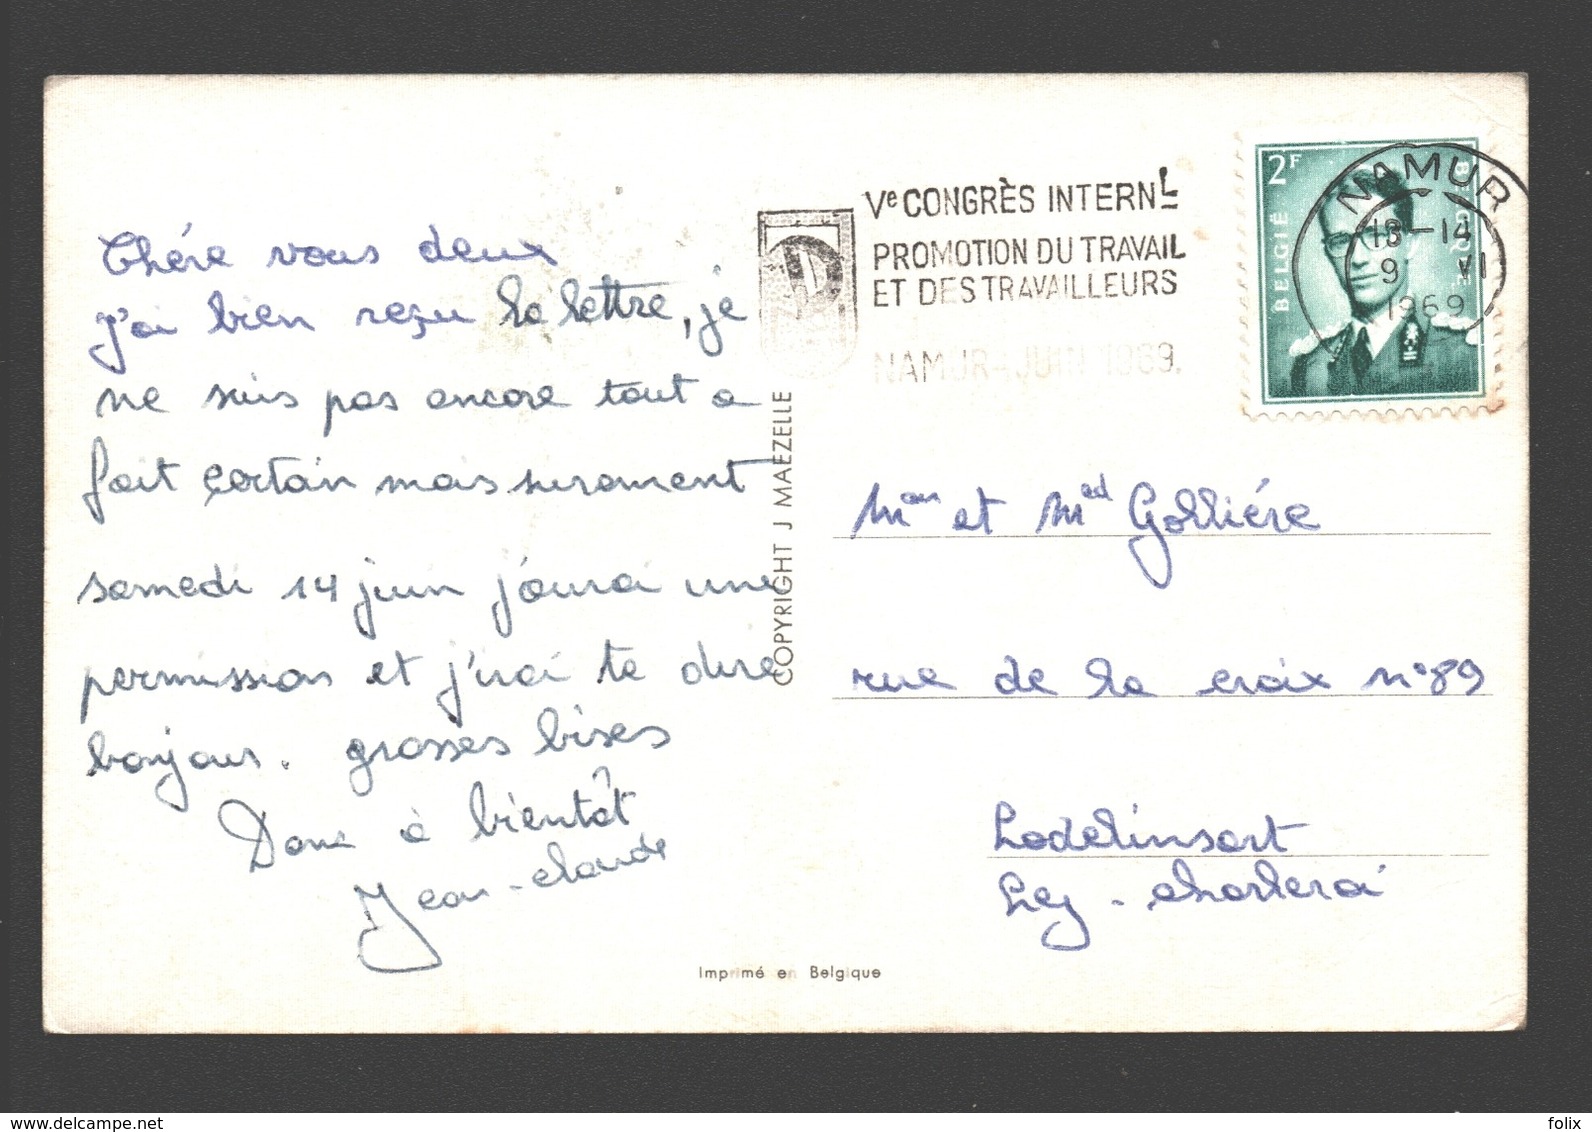 Chére vous deux
j'ai bien reçu la lettre, je
ne suis pas encore tout a
fait certain mais surement
samedi 14 juin j'aurai une
permission et j'irai te dire
bonjour. grosses bises
Donc à bientôt
Jean-claude
COPYRIGHT J MAEZELLE
Imprimé en Belgique
Ve CONGRÈS INTERNL
PROMOTION DU TRAVAIL
ET DES TRAVAILLEURS
NAMUR-JUIN 1969.
2F
BELGIË
NAMUR
13-14
9 VI
1969
et
rue de la croix n°89
Lodelinsart
Lez - charleroi
delcampe.net
folix